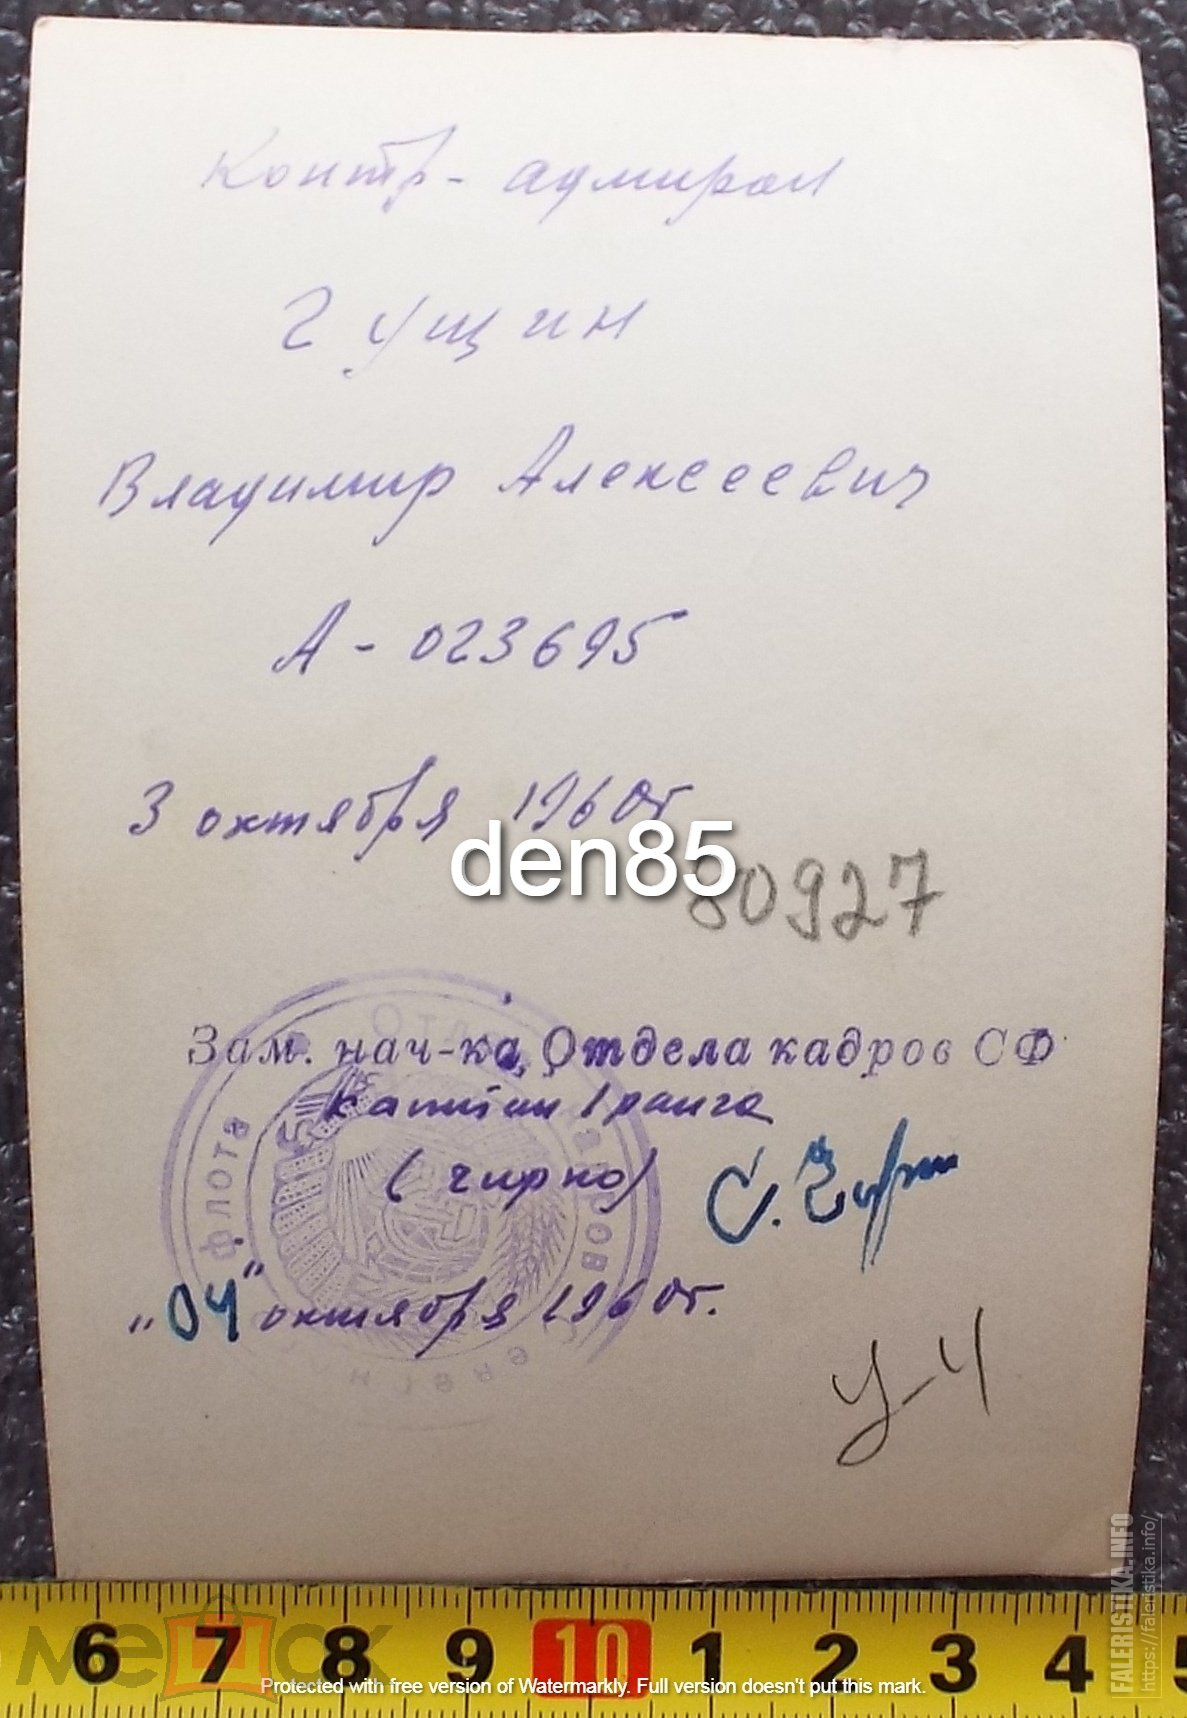 Контр-адмирал
Гущин
Владимир Алексеевич
А-023695
3 октября 1960г
den85
80927
Зам. нач-ка Отдела кадров СФ
Капитан 1 ранга
(Чирко)
„04" октября 1960г.
Отдел кадров
флота
У-4
6 7 8 9 10 1 2 3 4 5
мешок
Protected with free version of Watermarkly. Full version doesn't put this mark.
FALERISTIKA.INFO
https://faleristika.info/